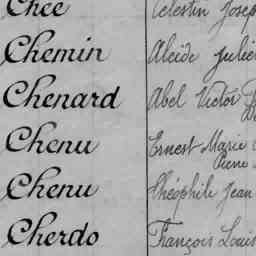 Chee Celestin Josep
Chemin Alcide Julie
Chenard Abel Victor
Chenu Ernest Marie
Pierre
Chenu Théophile Jean
Cherdo François Louis